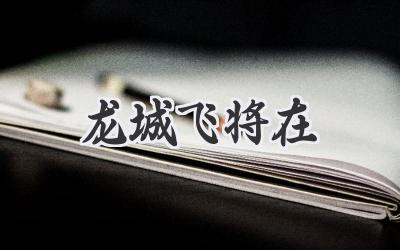 龙城飞将在